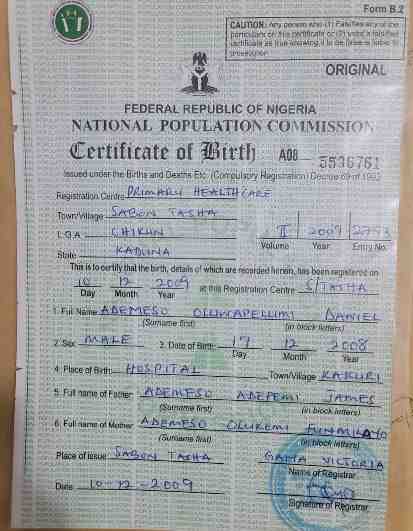 Form B.2
CAUTION: Any person who (1) Falsifies any of the
particulars on this certificate or (2) uses a falsified
certificate as true knowing it to be false is liable to
prosecution
ORIGINAL
FEDERAL REPUBLIC OF NIGERIA
NATIONAL POPULATION COMMISSION
Certificate of Birth A08 - 5536761
Issued under the Births and Deaths Etc. (Compulsory Registration) Decree 69 of 1992
Registration Centre PRIMARY HEALTHCARE
Town/Village SABON TASHA
L.G.A. CHIKUN II 2009 2793
Volume Year Entry No.
State KADUNA
This is to certify that the birth, details of which are recorded herein, has been registered on
10 12 2009 at this Registration Centre S/TASHA
Day Month Year
1. Full Name ADEMESO DANIEL
(Surname first) (in block letters)
2. Sex MALE 3. Date of Birth 17 12 2008
Day Month Year
4. Place of Birth HOSPITAL Town/Village KAKURI
5. Full name of Father ADEMESO ADEFEMI JAMES
(Surname first) (in block letters)
6. Full name of Mother ADEMESO OLUKEMI FUNMILAYO
(Surname first) (in block letters)
Place of issue SABON TASHA GAMA VICTORIA
Name of Registrar
Date 10-12-2009
Signature of Registrar